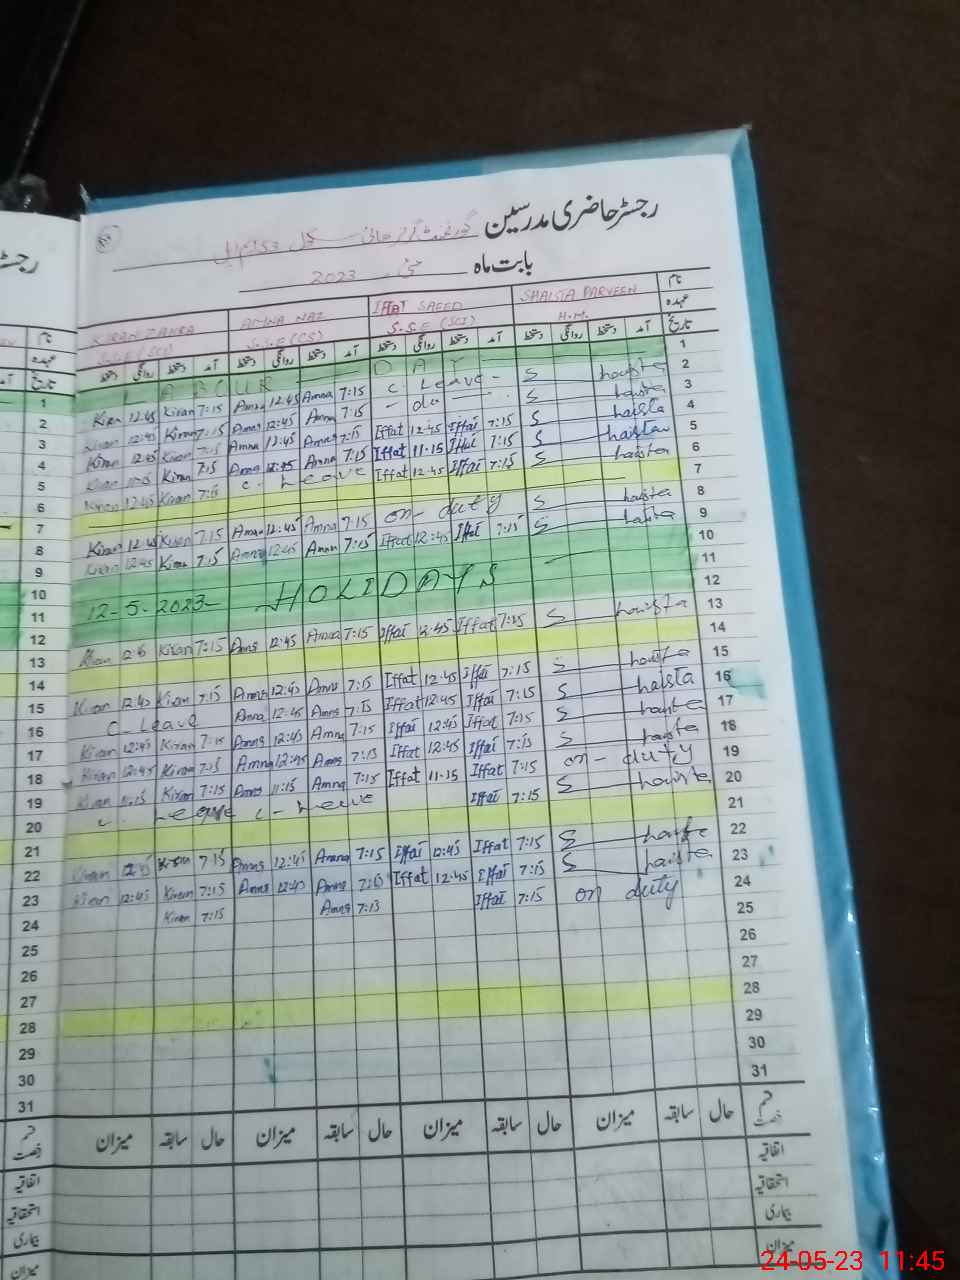 رجسٹر حاضری مدرسین گورنمنٹ گرلز ہائی سکول
بابت ماہ مئی 2023
نام SHAISTA PARVEEN IFFAT SAEED AMNA NAZ KIRAN ZAHRA
عہدہ H.M. S.S.E (SCI) S.S.E (CS) S.S.E (SCI)
تاریخ آمد دستخط روانگی دستخط آمد دستخط روانگی دستخط آمد دستخط روانگی دستخط آمد دستخط روانگی دستخط
1 LABOUR DAY 1
2 Kiran 12:45 Kiran 7:15 Amna 12:45 Amna 7:15 C. Leave - S haista 2
3 Kiran 12:45 Kiran 7:15 Amna 12:45 Amna 7:15 - do - S haista 3
4 Kiran 12:45 Kiran 7:15 Amna 12:45 Amna 7:15 Iffat 12:45 Iffat 7:15 S haista 4
5 Kiran 11:15 Kiran 7:15 Amna 12:45 Amna 7:15 Iffat 11-15 Iffat 7:15 S haista 5
6 Kiran 12:45 Kiran 7:15 C. Leave Iffat 12:45 Iffat 7:15 S haista 6
7 7
8 Kiran 12:45 Kiran 7:15 Amna 12:45 Amna 7:15 on- duty S haista 8
9 Kiran 12:45 Kiran 7:15 Amna 12:45 Amna 7:15 Iffat 12:45 Iffat 7:15 S haista 9
10 10
11 12-5-2023- HOLIDAYS 11
12 12
13 Kiran Kiran 7:15 Amna 12:45 Amna 7:15 Iffat 12:45 Iffat 7:15 S haista 13
14 14
15 Kiran 12:45 Kiran 7:15 Amna 12:45 Amna 7:15 Iffat 12:45 Iffat 7:15 S haista 15
16 C- Leave Amna 12:45 Amna 7:15 Iffat 12:45 Iffat 7:15 S haista 16
17 Kiran 12:45 Kiran 7:15 Amna 12:45 Amna 7:15 Iffat 12:45 Iffat 7:15 S haista 17
18 Kiran 12:45 Kiran 7:15 Amna 12:45 Amna 7:15 Iffat 12:45 Iffat 7:15 S haista 18
19 Kiran 11:15 Kiran 7:15 Amna 11:15 Amna 7:15 Iffat 11-15 Iffat 7:15 on- duty 19
20 C. Leave C- Leave Iffat 7:15 S haista 20
21 21
22 Kiran 12:45 Kiran 7:15 Amna 12:45 Amna 7:15 Iffat 12:45 Iffat 7:15 S haista 22
23 Kiran 12:45 Kiran 7:15 Amna 12:45 Amna 7:15 Iffat 12:45 Iffat 7:15 S haista 23
24 Kiran 7:15 Amna 7:15 Iffat 7:15 on duty 24
25 25
26 26
27 27
28 28
29 29
30 30
31 31
قسم رخصت حال سابقہ میزان حال سابقہ میزان حال سابقہ میزان حال سابقہ میزان
اتفاقیہ
استحقاقیہ
بیماری
میزان
24-05-23 11:45